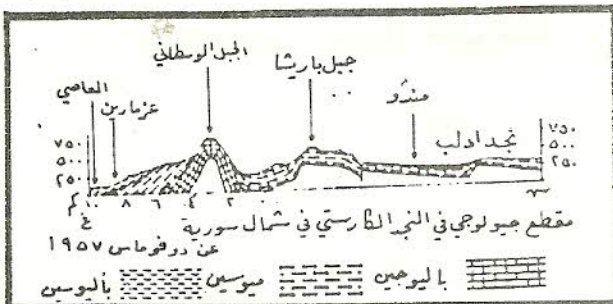 الجبل الوسطاني
جبل باريشا
العاصي
عزمارين
نجد ادلب
٧٥٠
٥٠٠
٢٥٠
٧٥٠
٥٠٠
٢٥٠
كم ١٠ ٨ ٦ ٤ ٢ ٠
غ
مقطع جيولوجي في النجد الكارستي في شمال سورية
عن دوفوماس ١٩٥٧
باليوجين
ميوسين
باليوسين